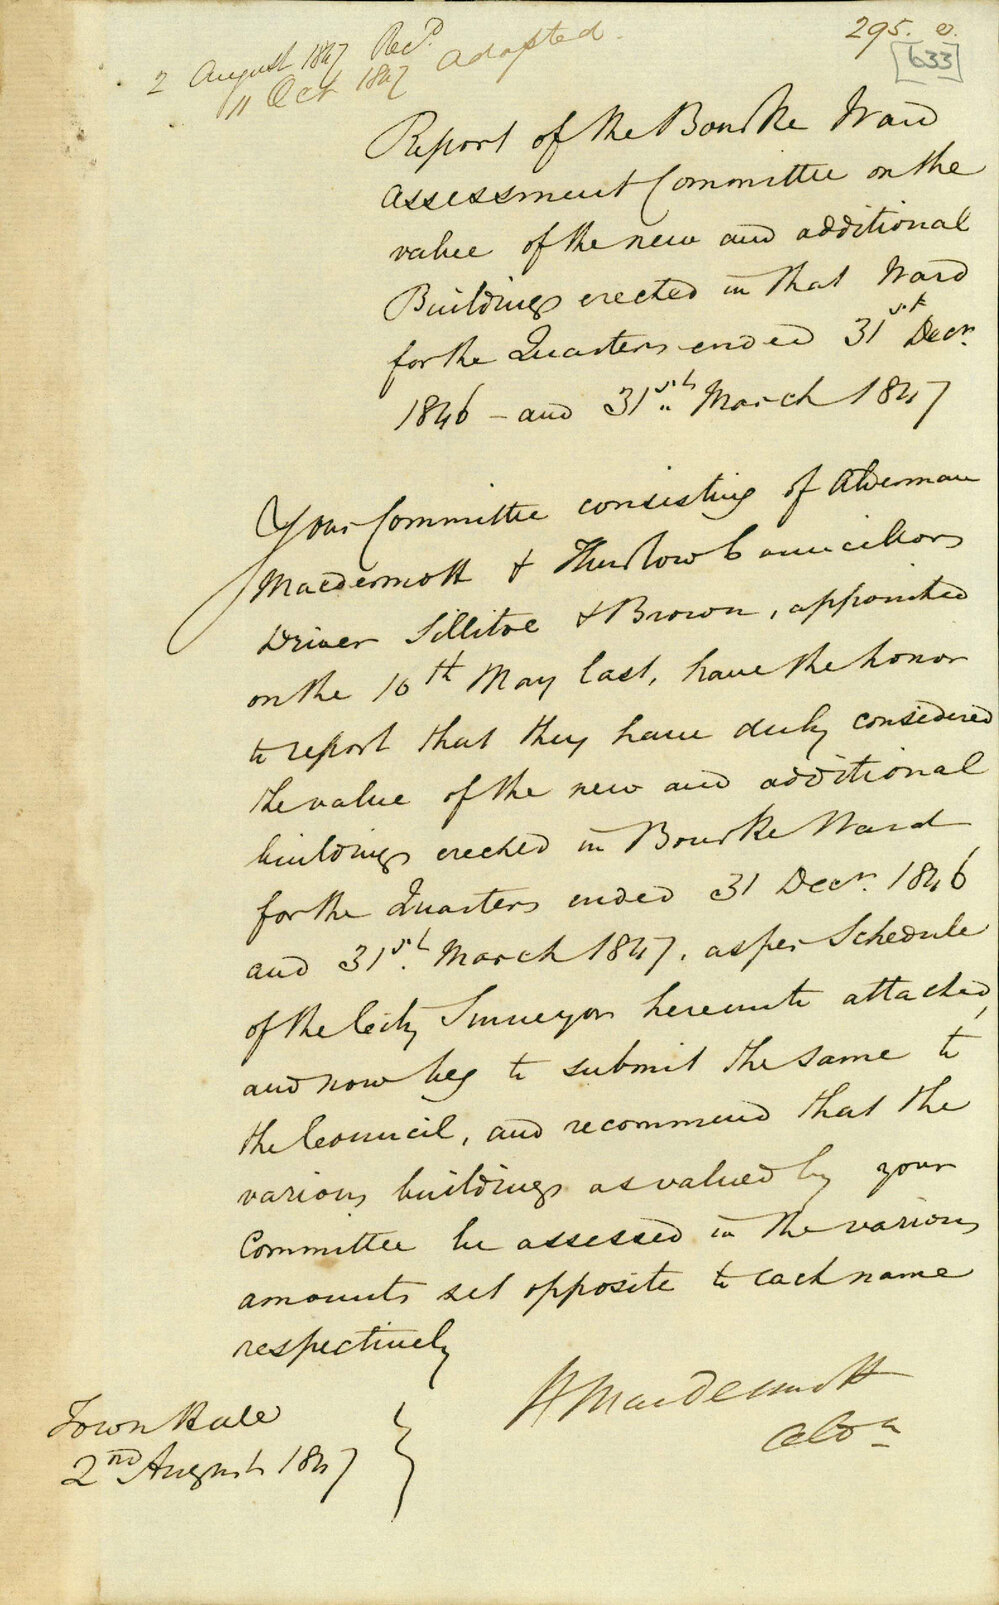 295. a.
633
2 August 1847 Recd.
11 Oct 1847 Adopted.
Report of the Bourke Ward
Assessment Committee on the
value of the new and additional
Buildings erected in that Ward
for the Quarters ended 31st Decr.
1846 - and 31st March 1847
Your Committee consisting of Alderman
Macdermott & Thurlow Councillors
Driver Sillitoe & Brown, appointed
on the 10th May last, have the honor
to report that they have duly considered
the value of the new and additional
buildings erected in Bourke Ward
for the Quarters ended 31 Decr. 1846
and 31st. March 1847, as per Schedule
of the City Surveyor hereunto attached,
and now beg to submit the same to
the Council, and recommend that the
various buildings as valued by your
Committee be assessed in the various
amounts set opposite to each name
respectively
H Macdermott
Town Hall
2nd August 1847